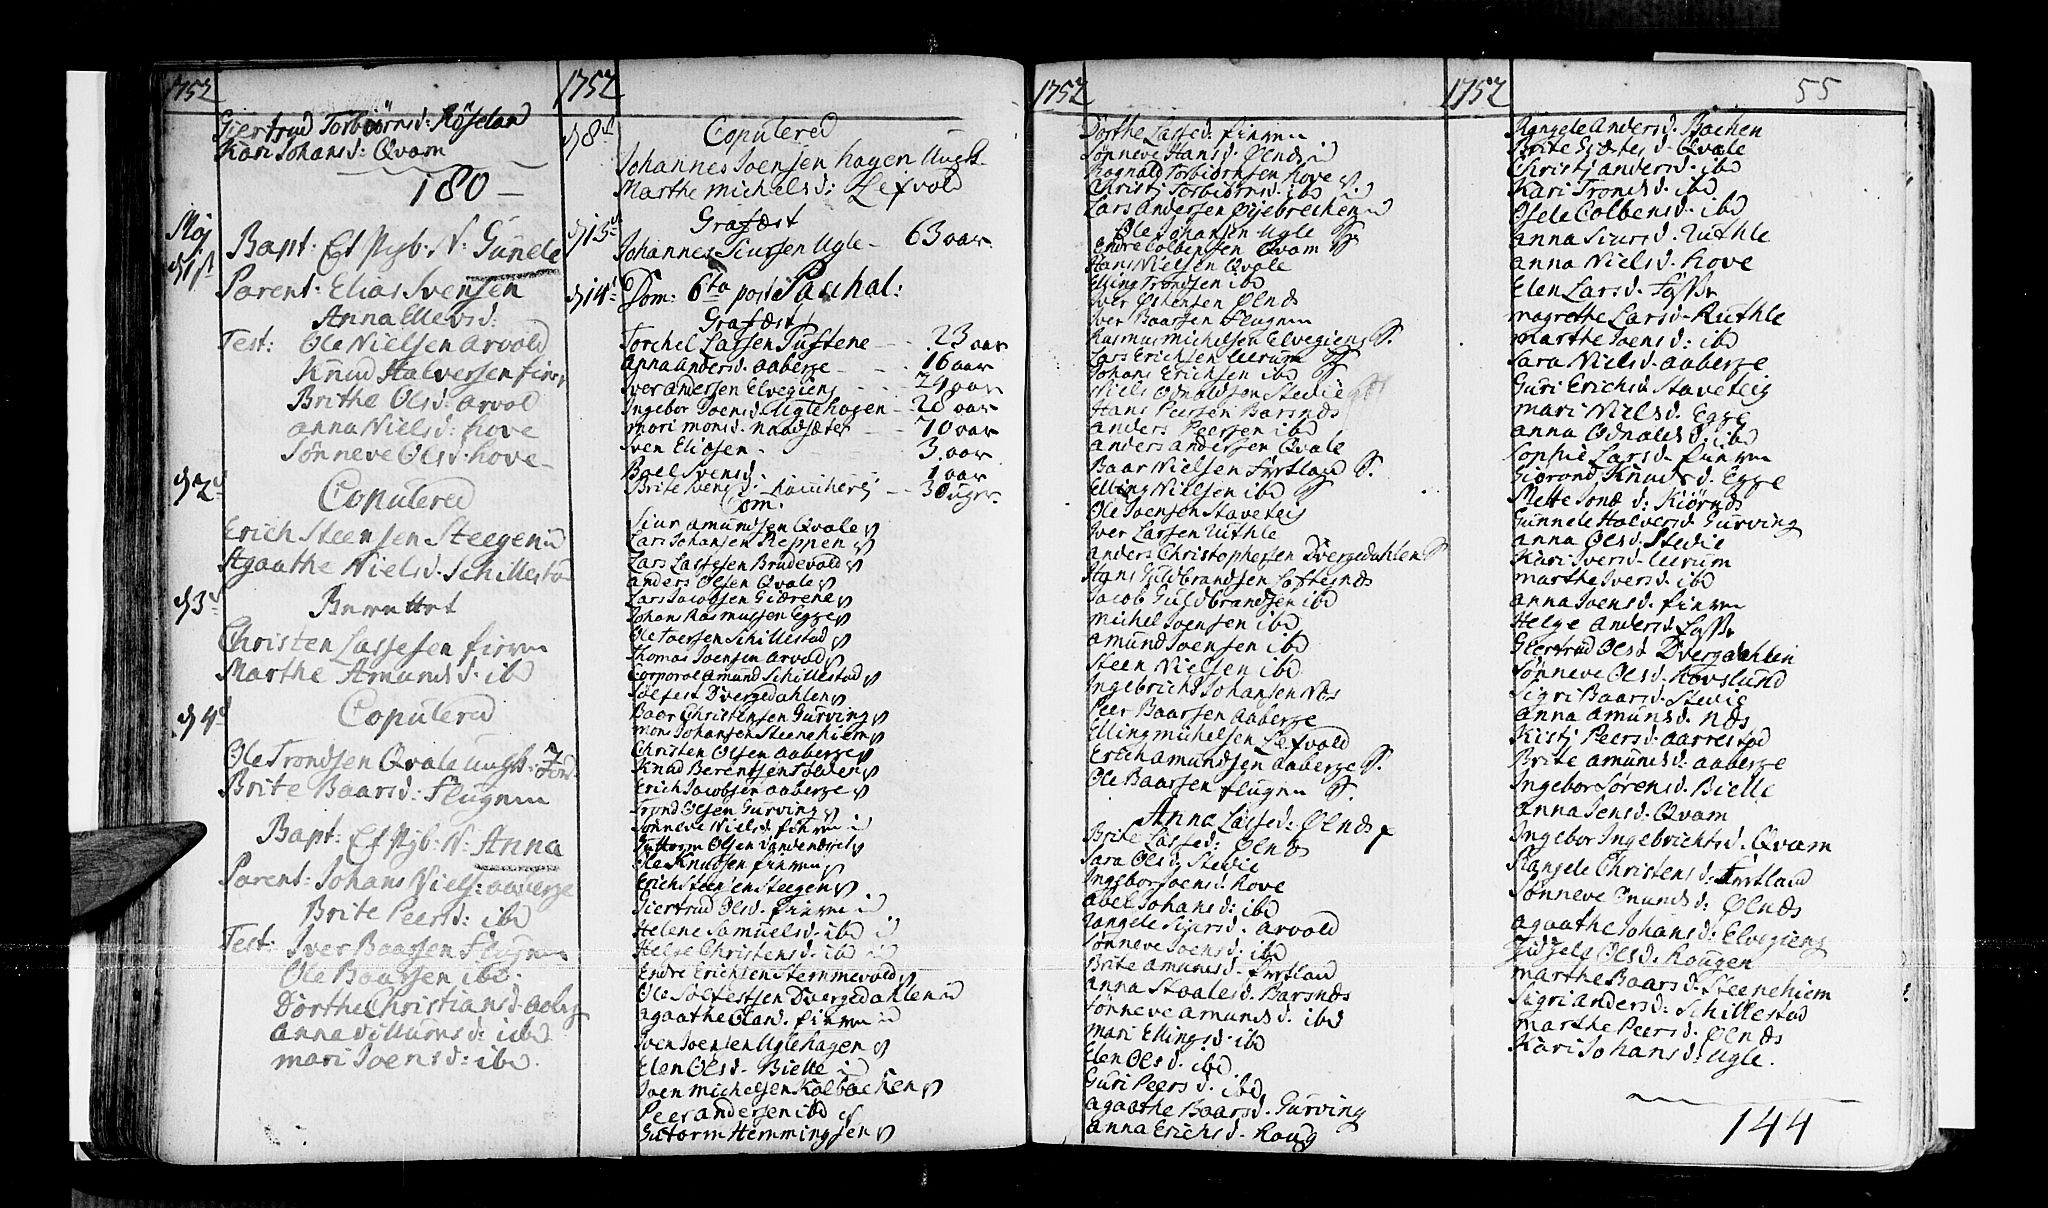 1752
Giertrud Torbiörnsd: Röseland
Kari Johansd: Qvam
180
Maj
d 1st
Bapt: Et Pigb: N: Gunele
Parent: Elias Svensen
Anna Ellevsd:
Test: Ole Nielsen Arvold
Knud Halversen
Brithe Olsd: Arvol
Anna Nielsd: Hove
Sönneve Olsd: Hove
d 2d
Copulered
Erich Steensen Steegen
Agaathe Nielsd: Schillestad
d 3d
Christen Lassesen
Marthe Amunds d: ibd
d 4d
Copulered
Ole Trondsen Qvale
Brite Baarsd: Flugum
Bapt: Et Pigb: N: Anna
Parent: Johans Niels: Aaberge
Brite Peersd: ibd
Test: Iver Baarsen Flugum
Ole Baarsen ibd
Dorthe Christiansd: Aaberg
Anna Villumsd: ibd
Mari Joensd: ibd.
1752
d 8d
Copulered
Johannes Joensen Hagen
Marthe Michelsd: Lefvold
d 13d
Grafæst
Johannes Siursen Ugle 63 aar
d 14d
Dom: 6ta post Paschal:
Grafæst
Torchel Larsen Tuftene 23 aar
Anna Andersd. Aaberge 16 aar
Iver Andersen Elvegiens 24 aar
Ingebor Joensd. Uglehagen 28 aar
Mari Monsd. Naadsæter 70 aar
Sven Eliasen 3 aar
Boel Svensd. 1 aar
Brite 3 uger
Com.
Siur Amundsen Qvale
Lars Johansen Reppen
Lars Lassesen Brudevold
Anders Olsen Qvale
Lars Jacobsen Giærene
Johans Rasmussen Egge
Ole Schillestad
Thomas Joensen Arvold
Corporal Amund Schillestad
Solfest Dvergedahlen
Baar Christensen Gurving
Mons Johansen Steenehiem
Christen Olsen Aaberge
Knud Berentsen
Erich Jacobsen Aaberge
Trond Olsen Gurving
Sönneve Nielsd:
Guttorm Olsen
Ole Knudsen
Erich Steensen Steegen
Giertrud Olsd.
Helene Samuelsd. ibd
Helge Christensd. ibd
Endre Erichsen Stemmevold
Ole Solfestsen Dvergedahlen
Agaathe Olasd.
Sven Joensen Uglehagen
Elen Olsd. Bielle
Sven Michelsen Kalbachen
Peer Andersen ibd
Gutorm Hemmingsen
1752
Dorthe Lassed:
Sönneve Hansd. Ølnæs
Rognald Torbiörnsen Hove
Christi Torbiörnsd. ibd
Lars Andersen Øyebrechen
Ole Johansen Ugle
Endre Colbensen Qvam
Hans Nielsen Qvale
Elling Trondsen ibd
Iver Ostensen Ølnæs
Iver Baarsen Flugum
Rasmus Michelsen Elvegiens
Lars Erichsen Uerum
Johans Erichsen ibd
Niels Odnaldsen Stedie
Hans Peersen Barsnæs
Anders Peersen ibd
Anders Andersen Qvale
Baar Nielsen Fortland
Elling Nielsen ibd
Ole Joensen Staveteig
Iver Larsen Ruthle
Anders Christophersen Dvergedahlen
Hans Guldbrandsen Loftesnæs
Jacob Guldbrandsen ibd
Michel Joensen ibd
Amund Joensen ibd
Steen Nielsen ibd
Ingebricht Johansen Næs
Peer Baarsen Aaberge
Elling Michelsen Lefvold
Erich Amundsen Aaberge
Ole Baarsen Flugum
Anna Lassed: Ølnæs
Brite Lassed: Ølnæs
Sara Olsd: Stedie
Ingebor Joensd. Hove
Abel Johansd: ibd
Rangele Arvold
Sönneve Joensd: ibd
Brite Amunsd. Fortland
Anna Staalesd. Barsnæs
Sönneve Amunsd. ibd
Mari Ellingsd. ibd
Elen Olsd. ibd
Guri Peersd. ibd
Agaathe Baarsd. Gurving
Anna Erichsd. Houg
1752
55
Rangele Andersd. Bachen
Brite Qvale
Christi Andersd. ibd
Kari Tronsd. ibd
Osele Colbensd. ibd
Anna Siursd. Ruthle
Anna Nielsd. Hove
Elen Larsd.
Magrethe Larsd. Ruthle
Marthe Joensd: ibd
Sara Nielsd. Aaberge
Guri Erichsd. Staveteig
Mari Nielsd. Egge
Anna Odnalsd. ibd
Sophie Larsd.
Knudsd. Egge
Mette Kiörnæs
Gunnele Halversd. Gurving
Anna Olsd. Stedie
Kari Iversd. Uerum
Marthe Iversd. ibd
Anna Joensd.
Helge Andersd.
Giertrud Olsd. Dvergedahlen
Sönneve Olsd. Hovslund
Sigri Baarsd. Stedie
Anna Amunsd. Næs
Kisti Peersd. Aarrestad
Brite Amunsd: Aaberge
Ingebor Sörensd. Bielle
Anna Jensd. Qvam
Ingebor Ingebrichtsd. Qvam
Rangele Christensd: Fortland
Sönneve Ølnæs
Agaathe Johansd: Elvegiens
Olsd. Hougen
Marthe Baarsd: Steenehiem
Sigri Andersd: Schillestad
Marthe Peersd. Ølnæs
Kari Johansd: Ugle.
144